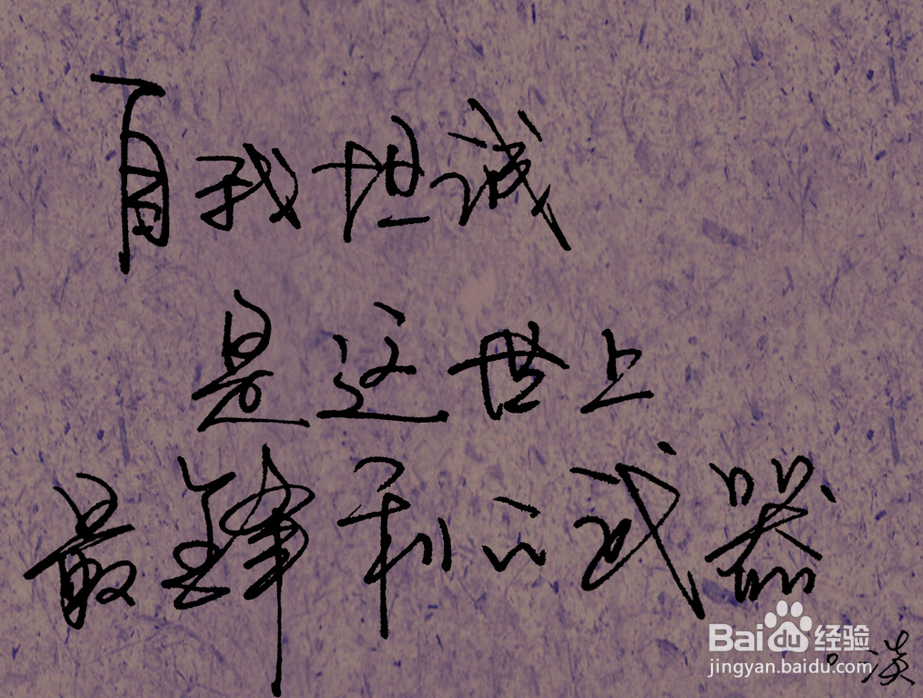 自我坦诚
是这世上
最锋利的武器
Bai du 经验
jingyan.baidu.com
淡